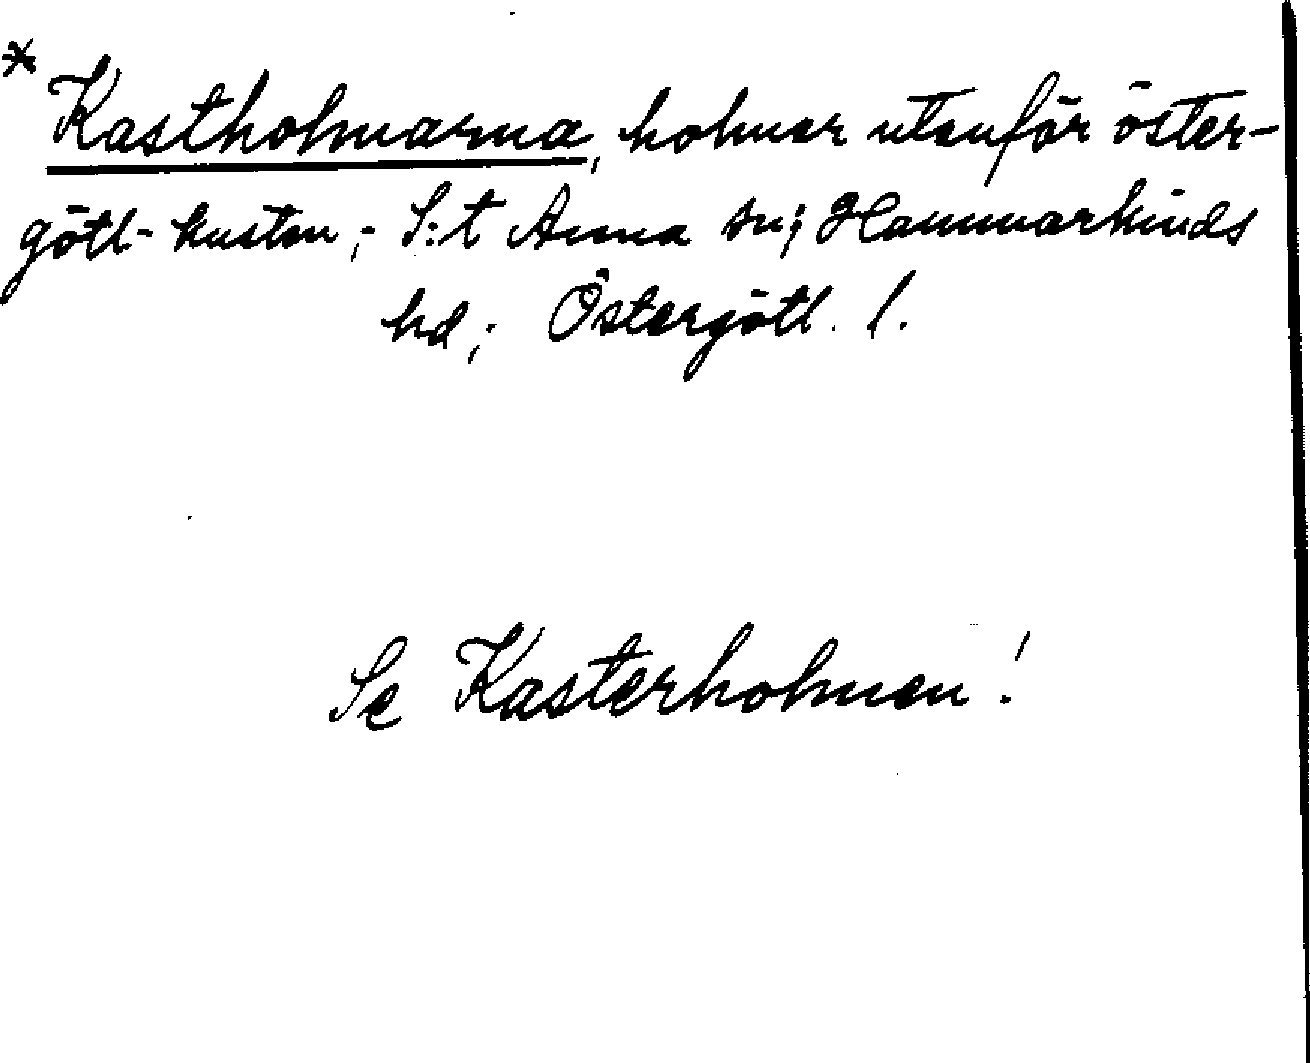 * Kastholmarna, holmar utanför öster-
götl-kusten; S:t Anna sn; Hammarkinds
hd; Östergötl. l.
Se Kasterholmen!